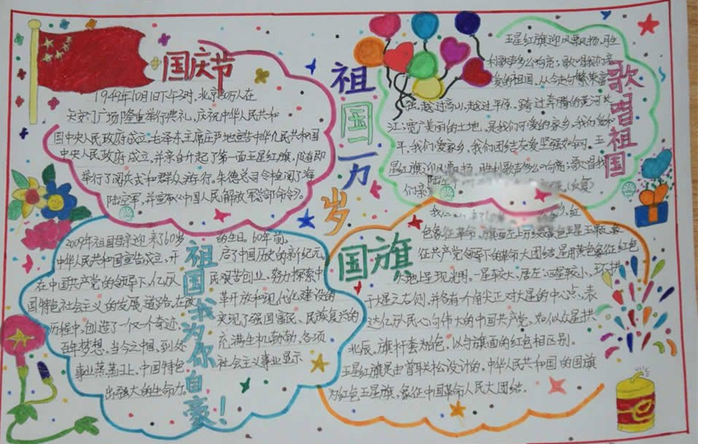 国庆节
1949年10月1日下午3时，北京30万人在
天安门广场隆重举行典礼，庆祝中华人民共和
国中央人民政府成立。毛泽东主席庄严地宣告中华人民共和国
中央人民政府成立，并亲自升起了第一面五星红旗，随即
举行了阅兵式和群众游行，朱德总司令检阅了海
陆空军，并宣布《中国人民解放军总部命令》。
祖国万岁
五星红旗迎风飘扬，胜
利歌声多么响亮；歌唱我们亲
爱的祖国，从今走向繁荣富
强。越过高山，越过平原，跨过奔腾的黄河长
江；宽广美丽的土地，是我们可爱的家乡，我们爱和
平，我们爱家乡，我们团结友爱坚强如钢。五
星红旗迎风飘扬，胜利歌声多么响亮；歌唱我
歌唱祖国
2009年祖国母亲迎来了60岁的生日。60年前，
中华人民共和国宣告成立，开启了中国历史的新纪元。
在中国共产党的领导下，亿万人民艰苦创业，努力探索中
国特色社会主义的发展道路，在改革开放和现代化建设的
历程中，创造了一个又一个奇迹，实现了强国富民、民族复兴的
百年梦想。当今之中国，到处充满生机勃勃，各项
事业蒸蒸日上，中国特色社会主义事业显示
出强大的生命力。
祖国我为你自豪！
国旗
色象征革命，旗面左上方
征共产党领导下的革命大团结，星用黄色象征红色
大地上呈现光明，一星较大，居左，四星较小，环拱
于大星之右侧，并各有一个角尖正对大星的中心点，表
达亿万人民心向伟大的中国共产党，如似众星拱
北辰。旗杆套为白色，以与旗面的红色相区别。
五星红旗是由曾联松设计的。中华人民共和国的国旗
为红色五星旗，象征中国革命人民大团结。